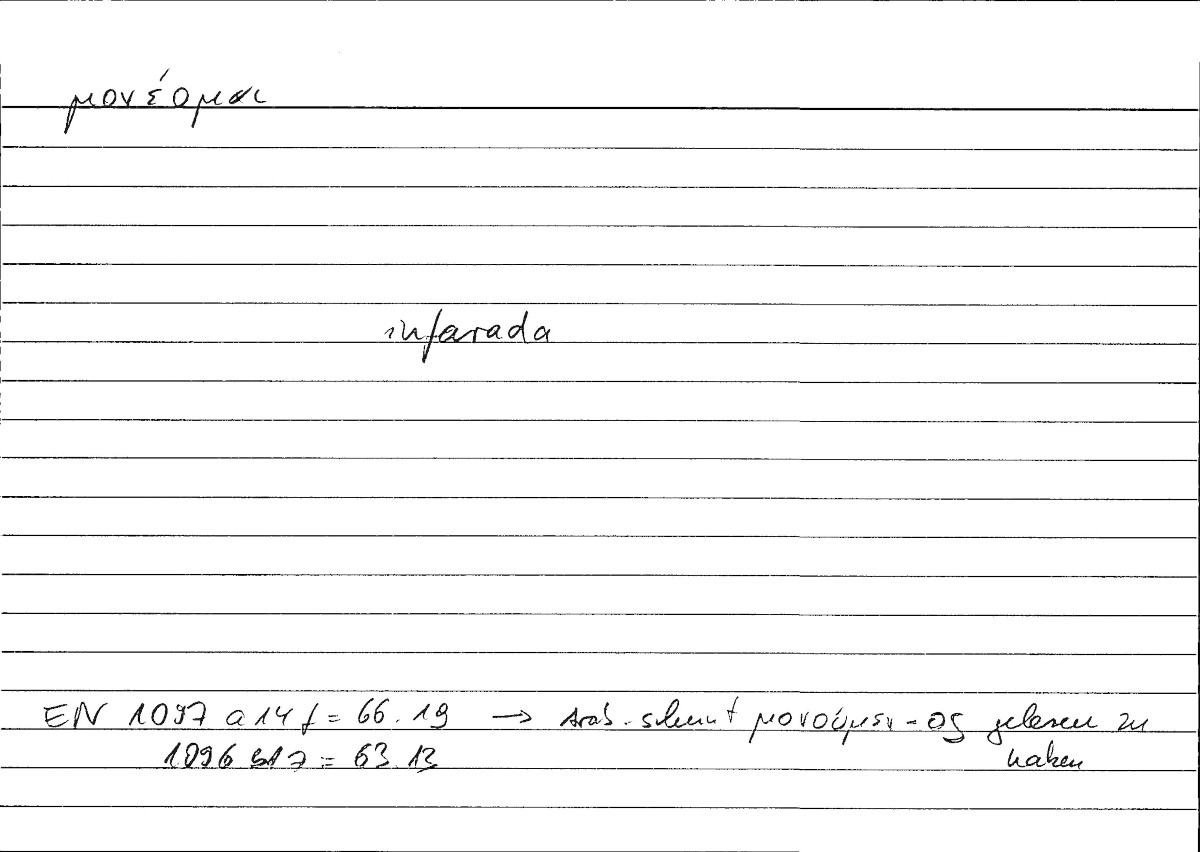 μονέομαι
infarada
EN 1097 a 14 f = 66.19 → Arab. scheint μονούμεν-ος gelesen zu
haben
1096 b 17 = 63.13